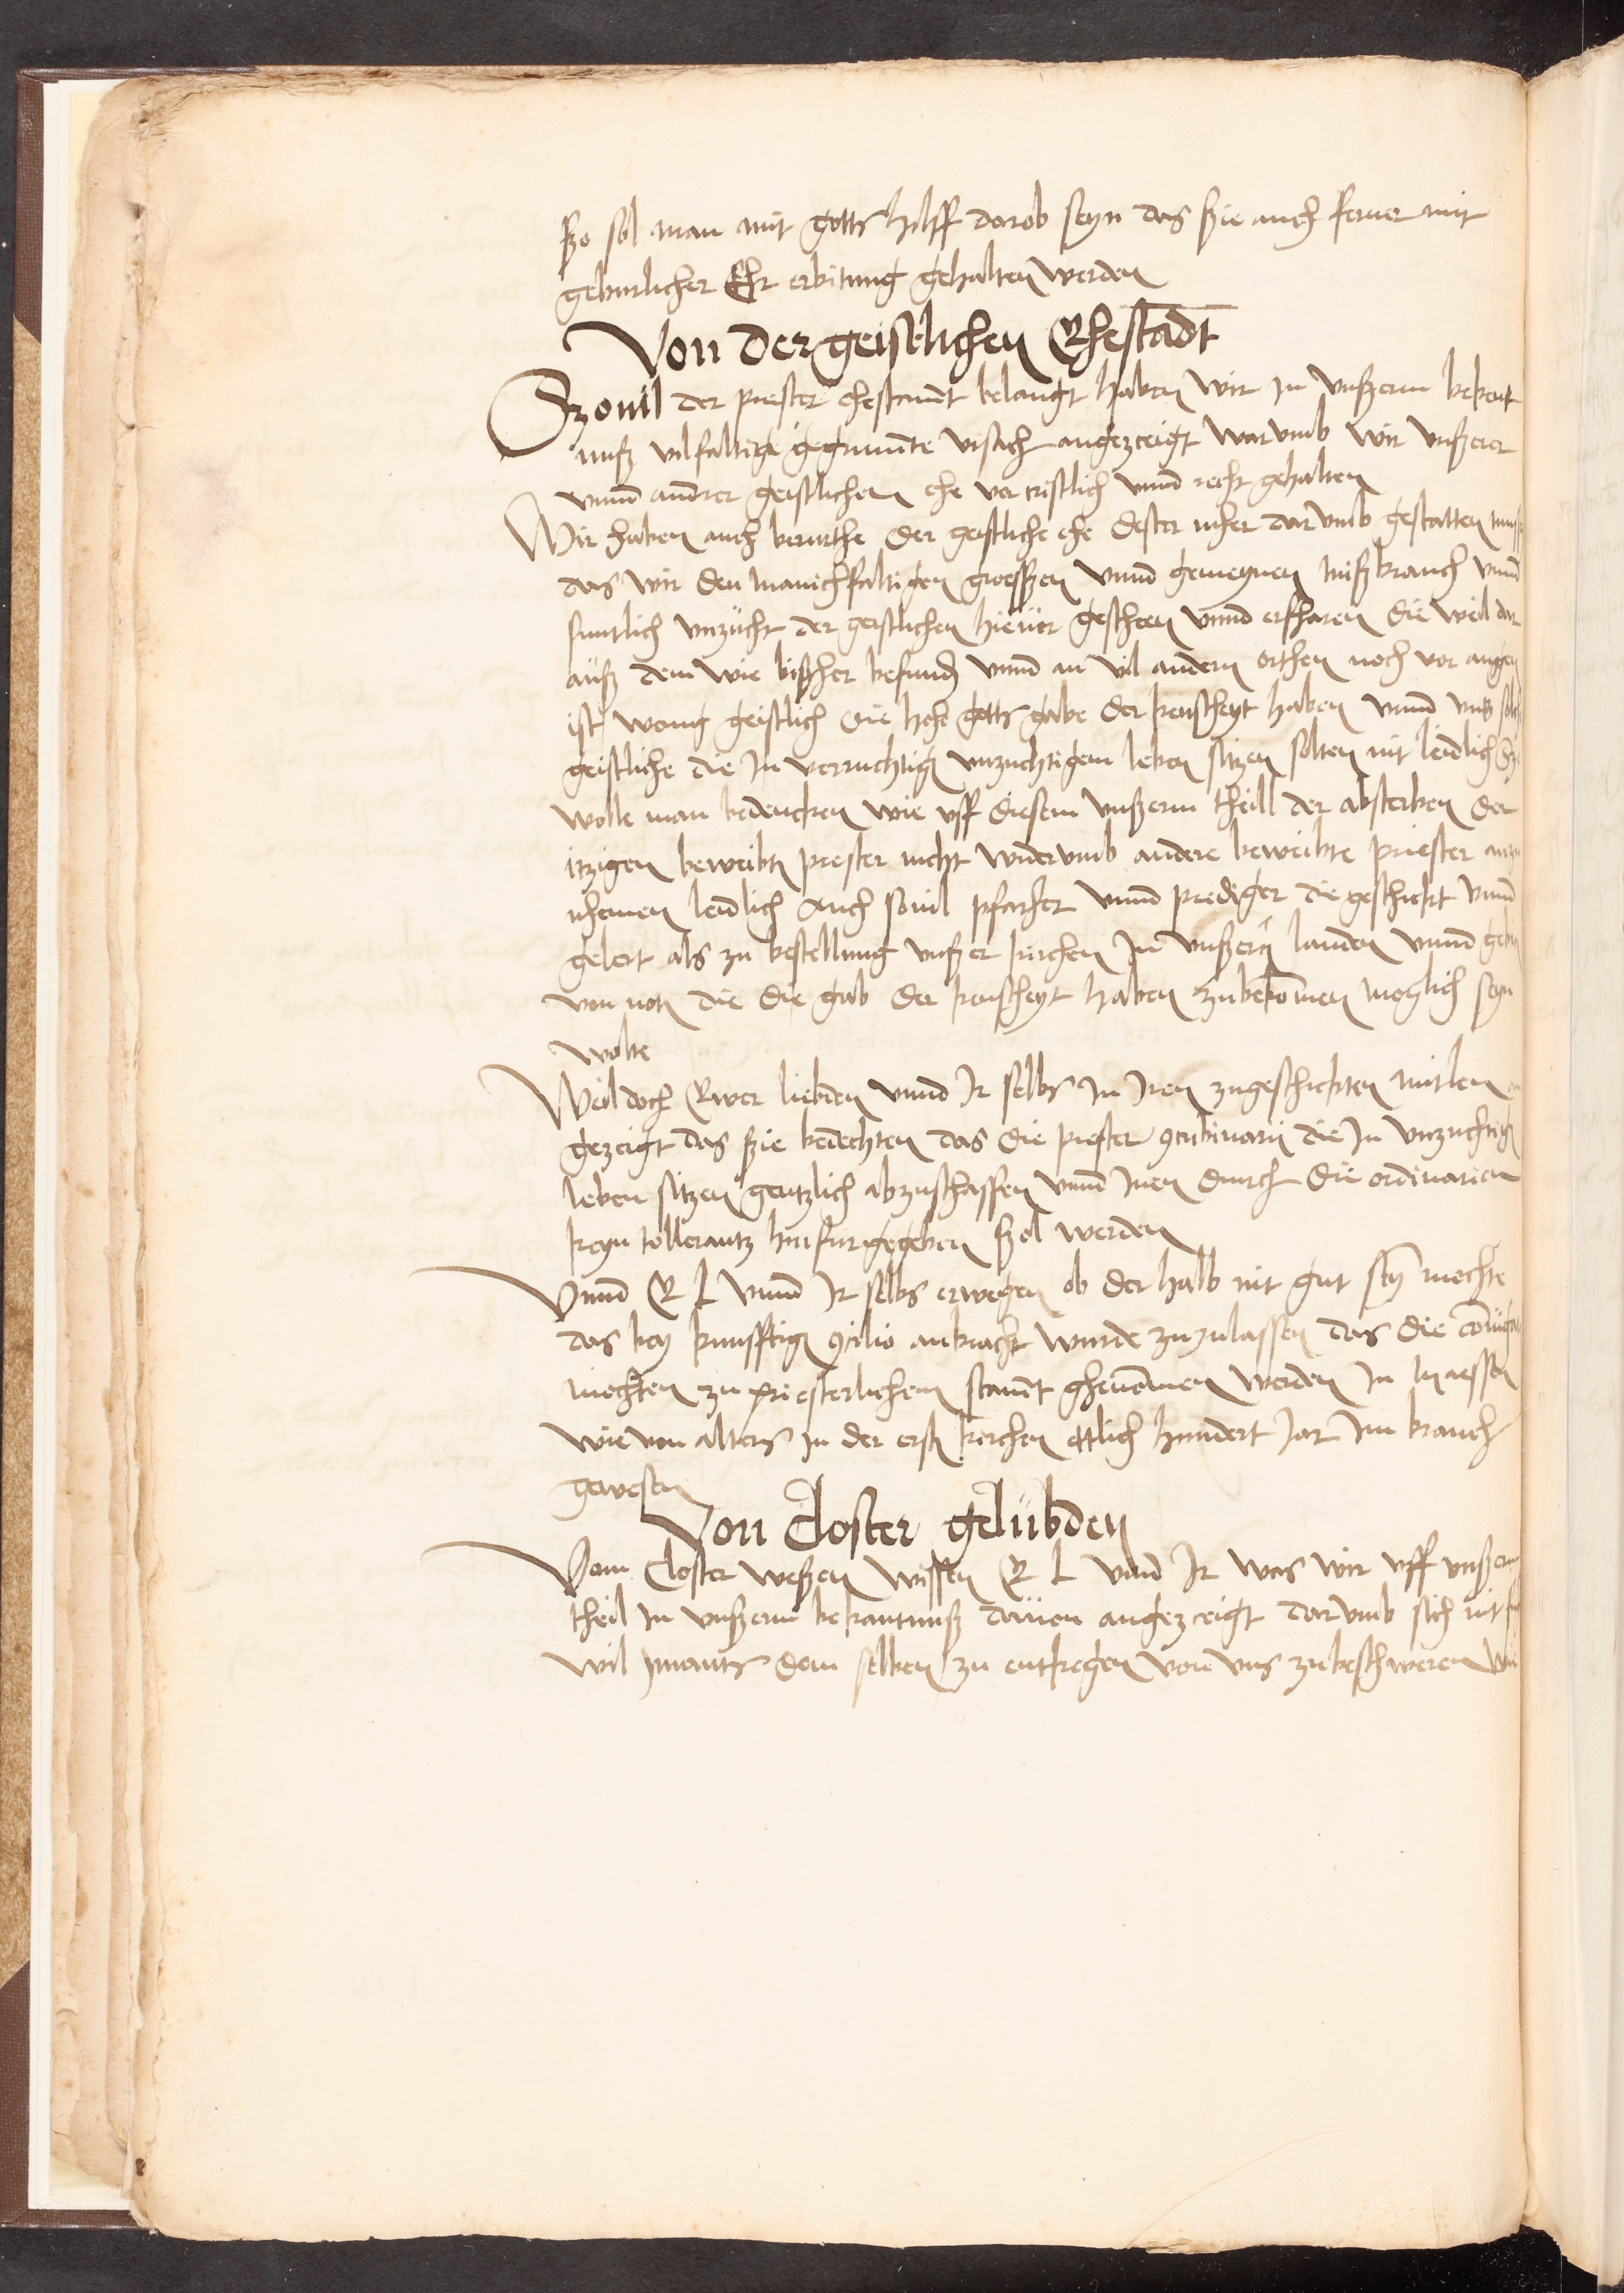 ßo sol man mit gotts hilff darob seyn das ßie auch ferner mit
geburlicher Ehr erbitung gehalten werden
Von der geistlichen Ehestadt
Szouil der priester ehestannt belangt haben wir in vnßerm bekent
nuß vilfaltige gegrunnte vrsach angezceigt warumb wir vnßerer
vnnd anndrer geistlichen ehe vor cristlich vnnd recht gehalten
Wir haben auch berurthe der geistliche ehe dester eher darvmb gestatten
das wir den manichfaltigen grosßen vnnd gemeynen mißbrauch vnnd
suntlich vnzucht der geistlichen hieuor gesehen vnnd erfharen die weil dar
auß dem wie bisher befund vnnd an vil andern orthen noch vor augen
ist wenig geistlich die hohe gotts gabe der keuscheyt haben vnnd vns
geistliche die in verruchtig vnzuchtigem leben sitzen solten nit leidlich
wolle man bedencken wie vff diesem vnßerm theill der absterben der
itzigen beweibten prester nicht widervmb andere beweibte priester
nhemen leidlich Auch souil pfarher vnnd prediger die geschickt vnnd
gelert als zu bestellung vnßer kirchen in vnßern landen vnnd
von noten die die gab der keuscheyt haben zubekomen moglich seyn
wolte
Weil doch Ewer liebden vnnd Ir selbs in Iren zugeschickten mitlen
gezeigt das ßie bedechten das die priester 9cubinarij die in vnzuchtig
leben sitzen gentzlich abzuschaffen vnnd inen durch die ordinarien
keyn tollerantz hinfur gegeben ßol werden
Vnnd E L vnnd Ir selbs erwegen ob der halb nit gut sey mechte
das bey kunfftig 9cilio anbracht wurde zuzulassen das die
mochten zu priesterlichem stannt ghenomen werden in massen
wie von alters in der erst kirchen ettlich hundert Jar im brauch
gewesen
Von Closter gelubden
Vom Closter weßen wissen E L vnnd Ir was wir vff vnßerm
theil in vnßerm bekantnuß dauon angezceigt darvmb sich nit
wil ymants dem selben zu entkegen von vns zubeschweren